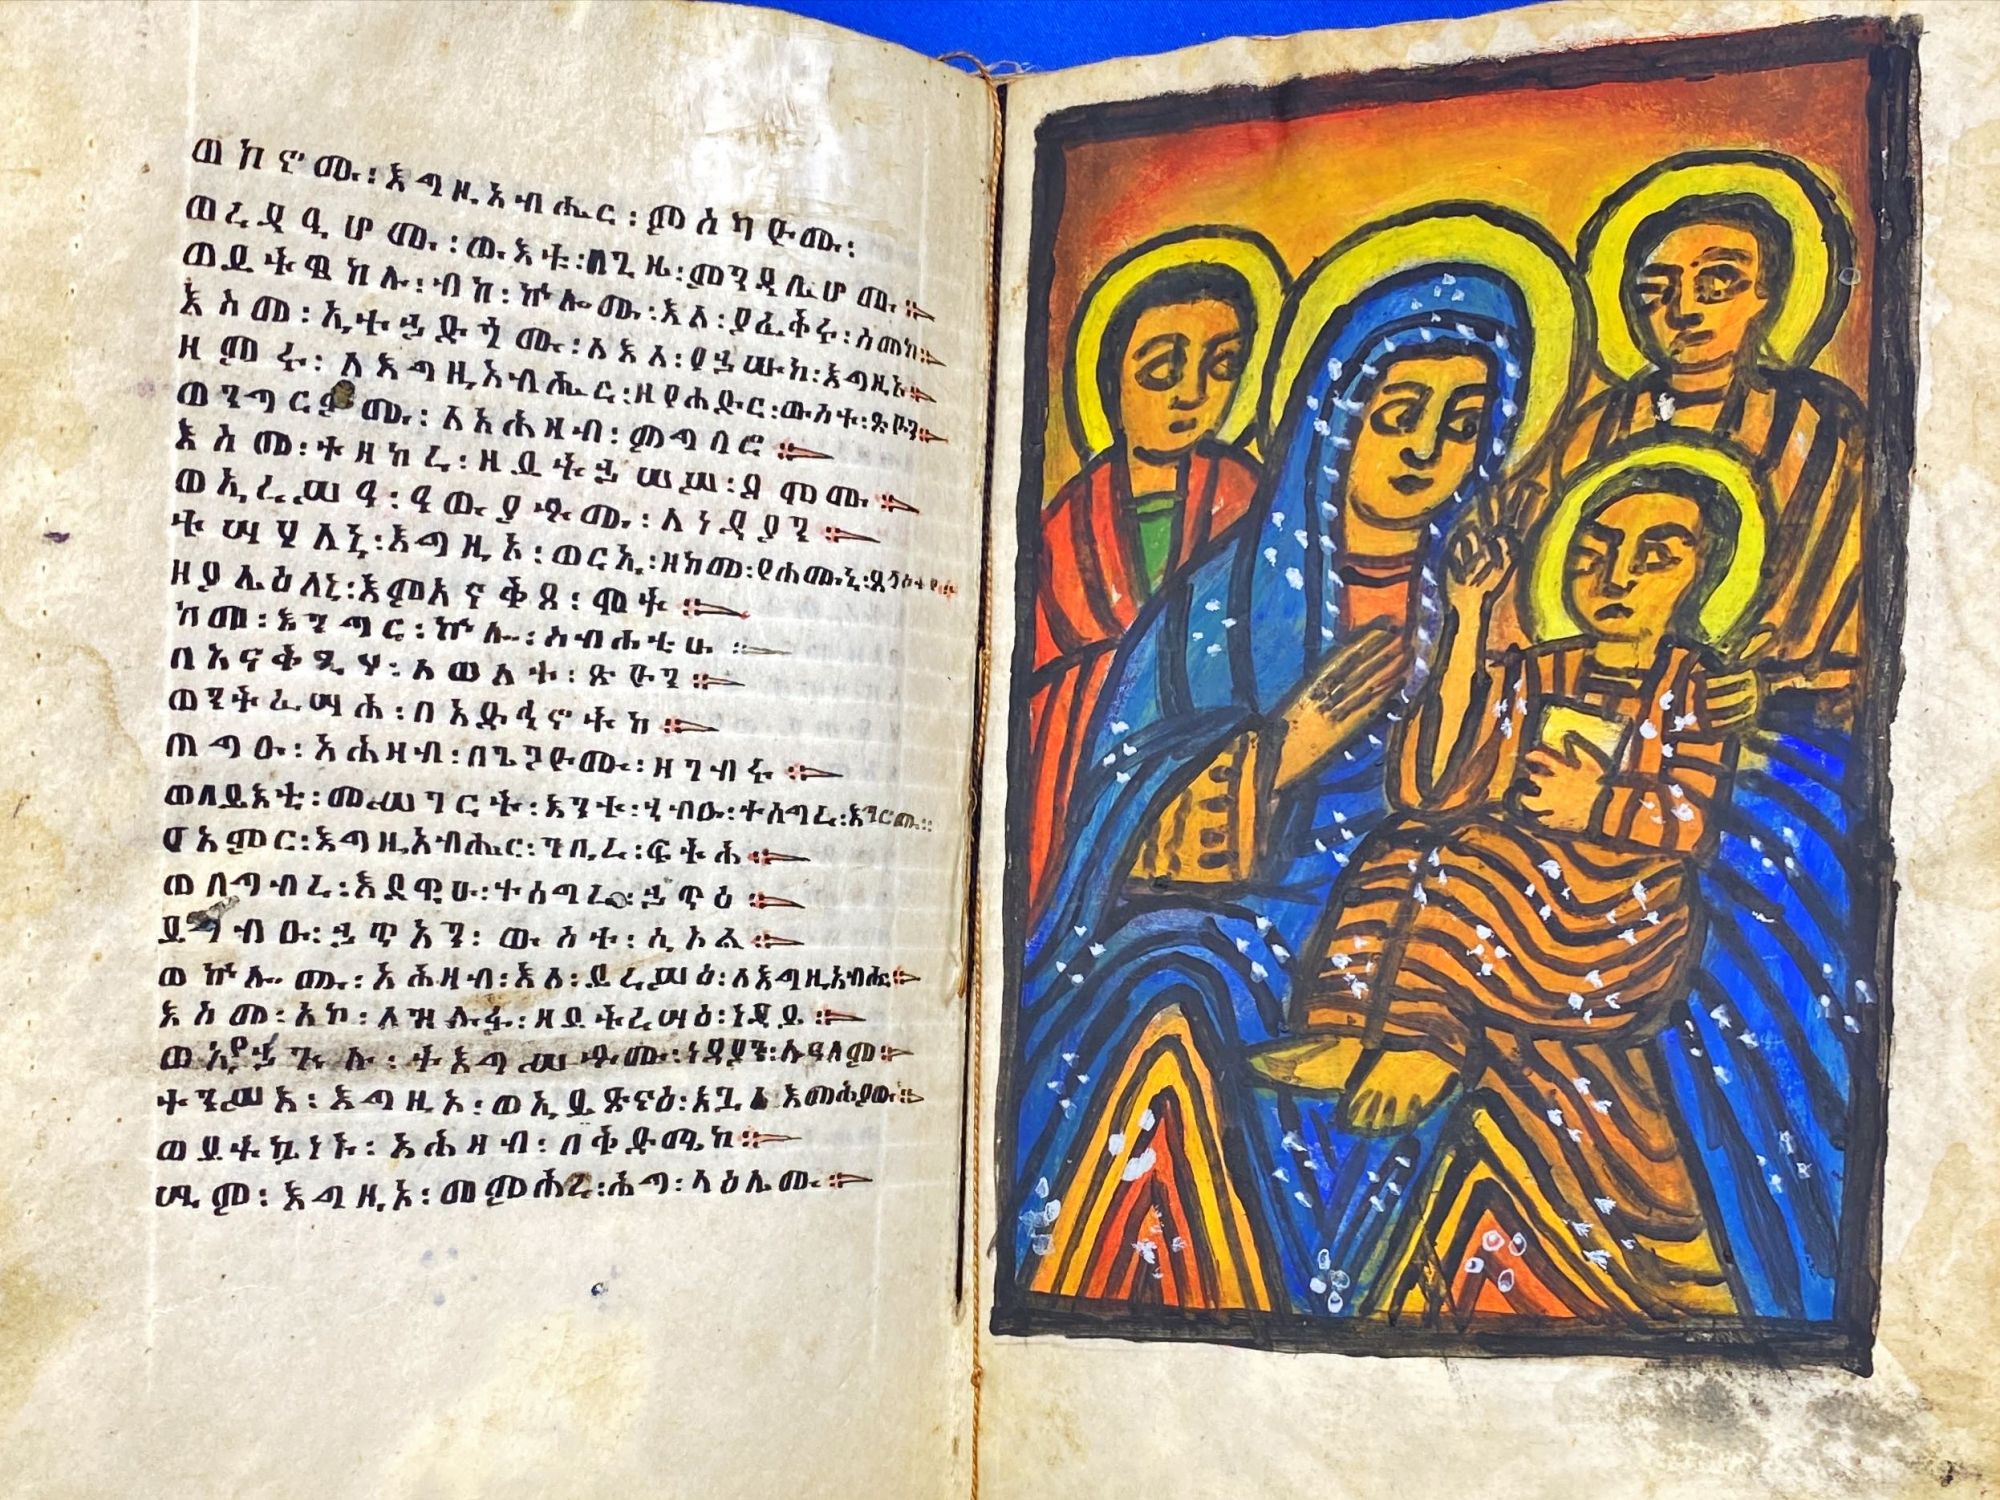 ወኮኖሙ፡እግዚአብሔር፡ምስካዮሙ፡
ወረዳዒሆሙ፡ውእቱ፡በጊዜ፡ምንዳቤሆሙ፨
ወይትዌከሉ፡ብከ፡ኵሎሙ፡እለ፡ያፈቅሩ፡ስመከ፨
እስመ፡ኢተኃድጎሙ፡ለእለ፡የኃሡከ፡እግዚኦ፨
ዘምሩ፡ለእግዚአብሔር፡ዘየሐድር፡ውስተ፡ጽዮን፨
ወንግርዎሙ፡ለአሕዛብ፡ምግባሮ፨
እስመ፡ተዘከረ፡ዘይትኃሠሥ፡ደሞሙ፨
ወኢረሥዓ፡ዓውያቶሙ፡ለነዳያን፨
ተሣሃለኒ፡እግዚኦ፡ወርኢ፡ዘከመ፡የሐሙኒ፡ጸላዕትየ፨
ዘያሌዕለኒ፡እምአናቅጸ፡ሞት፨
ከመ፡እንግር፡ኵሎ፡ስብሐቲሁ፨
በአናቅጺሃ፡ለወለተ፡ጽዮን፨
ወንትፌሣሕ፡በአድኅኖትከ፨
ጠግዑ፡አሕዛብ፡በጌጋዮሙ፡ዘገብሩ፨
ወበይእቲ፡መሥገርት፡እንተ፡ኀብዑ፡ተሰግረ፡እገሮሙ፨
ያአምር፡እግዚአብሔር፡ገቢረ፡ፍትሐ፨
ወበግብረ፡እደዊሁ፡ተሰግረ፡ኃጥዕ፨
ይግብዑ፡ኃጥአን፡ውስተ፡ሲኦል፨
ወኵሎሙ፡አሕዛብ፡እለ፡ይረሥዕ፡ለእግዚአብሔር፨
እስመ፡አኮ፡ለዝሉፉ፡ዘይትረሣዕ፡ነዳይ፨
ወኢየኃጕሉ፡ትዕግሥቶሙ፡ነዳያን፡ለዓለም፨
ተንሥእ፡እግዚኦ፡ወኢይጽናዕ፡እጓለ፡እመሕያው፨
ወይትኰነኑ፡አሕዛብ፡በቅድሜከ፨
ሢም፡እግዚኦ፡መምሕረ፡ሕግ፡ላዕሌሙ፨